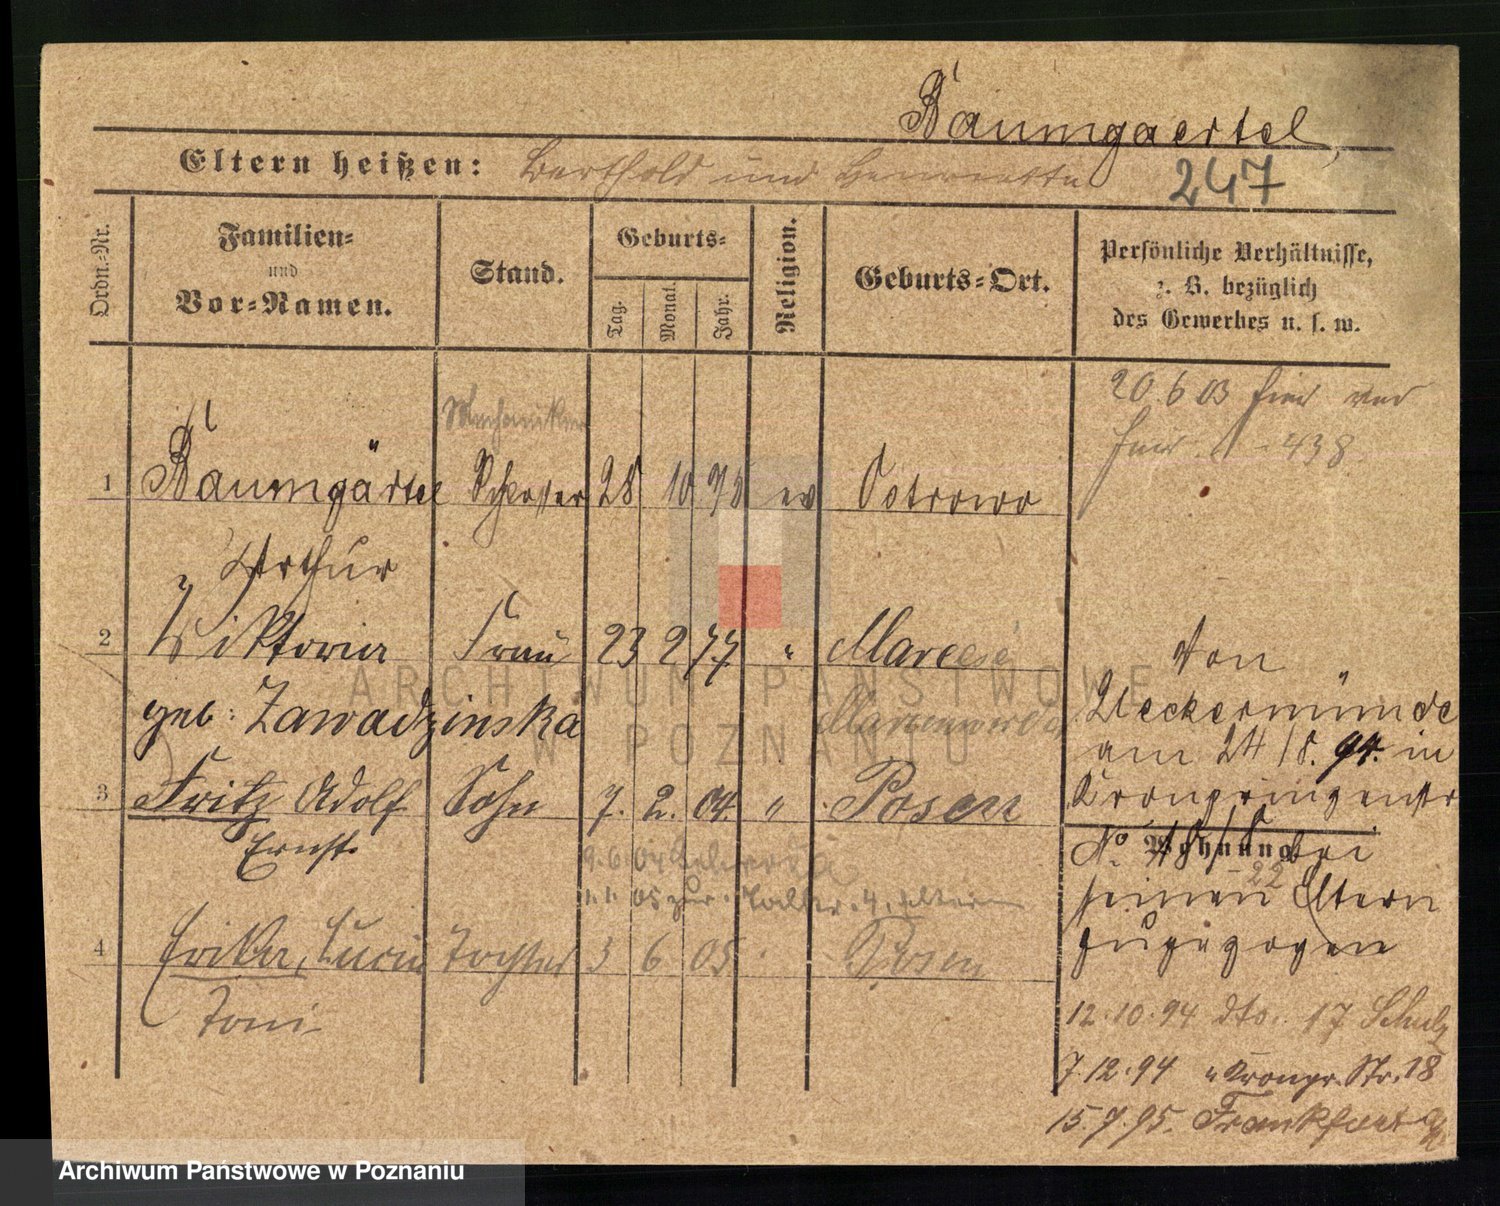 Baumgaertel
Eltern heißen: Berthold und Henriette 247
Ordn.-Nr. Familien- und Vor-Namen. Stand. Geburts- Tag. Monat. Jahr. Religion. Geburts-Ort. Persönliche Verhältnisse, z. B. bezüglich des Gewerbes u. s. w.
20.6.03
438
Mechaniker
1 Baumgärtel Schlosser 28 10 75 ev Ostrowo
Arthur
2 Viktoria Frau 23 2 77 " 
geb: Zawadzinska
3 Fritz Adolf Sohn 7. 2. 04. " Posen
Ernst
4 Erika, Lucie Tochter 3 6 05 Posen
Toni
Von
Ueckermünde
am 24/8. 94. in
Kronprinzenstr
No Wohnung bei
22
seinen Eltern
zugezogen
12.10.94 dto. 17 Schulz
7.12.94 " Kronpr. Str. 18
15.7.95. Frankfurt
ARCHIWUM PAŃSTWOWE
W POZNANIU
Archiwum Państwowe w Poznaniu